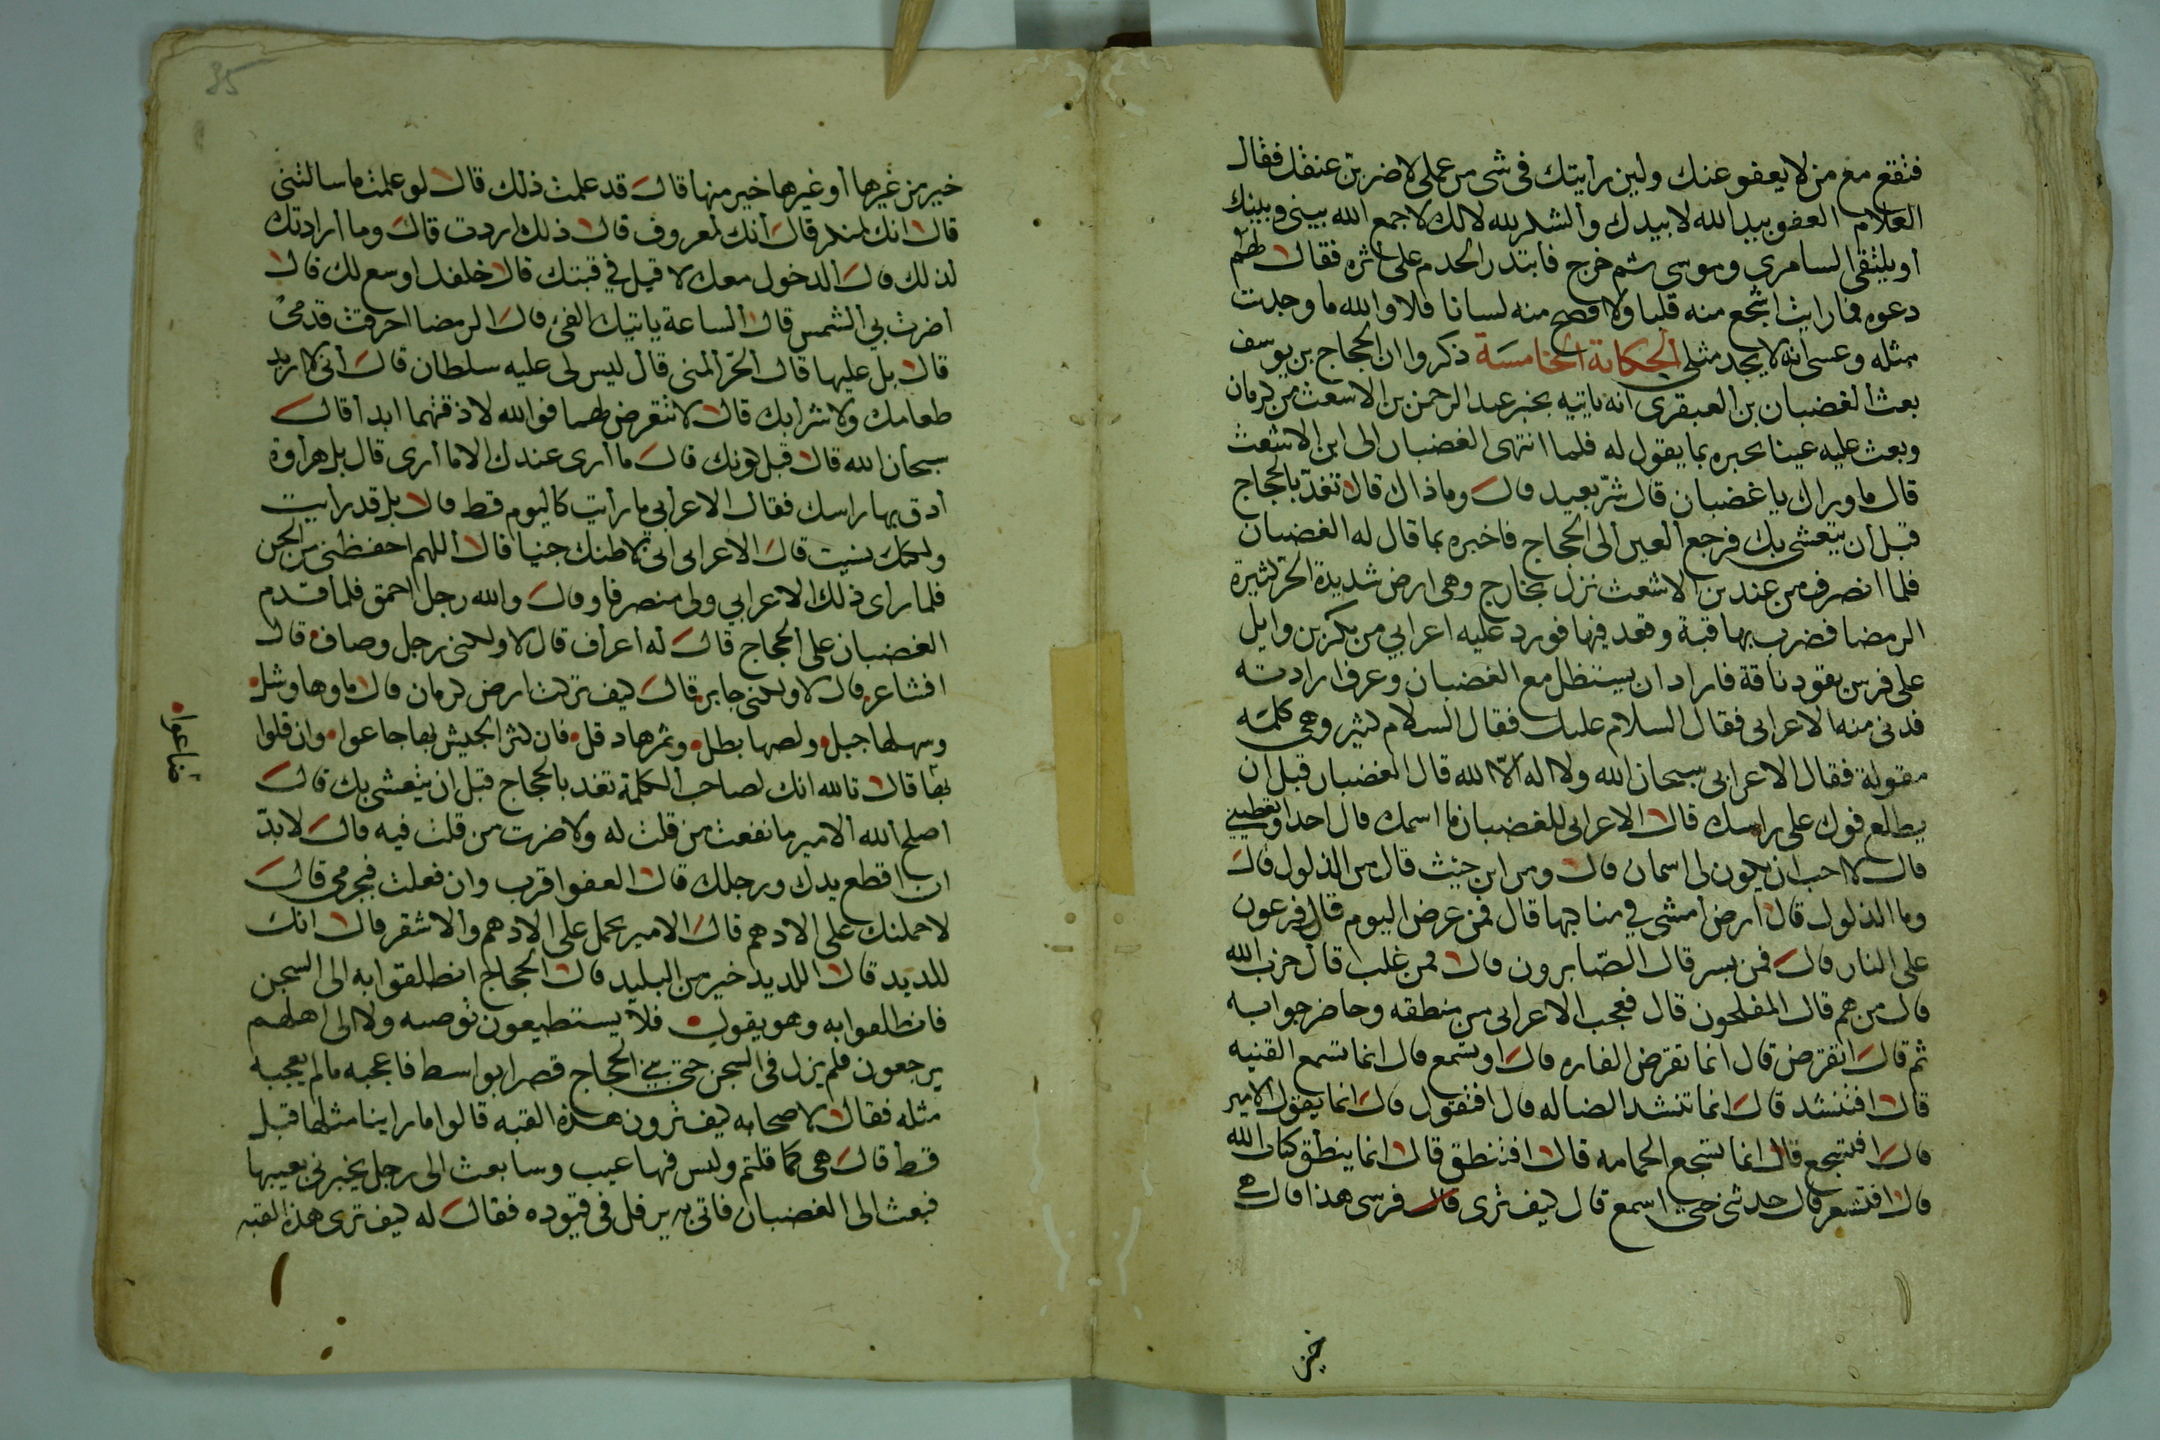 فتقع مع من لا يعفو عنك ولين رأيتك في شى من عملى لاضربن عنقك فقال
الغلام العفو بيد الله لا بيدك والشكر لله لا لك لا جمع الله بينى وبينك
أو يلتقى السامرى وموسى ثم خرج فابتدر الخدم على اثره فقال لهم
دعوه فما رايت اشجع منه قلبا ولا افصح منه لسانا فلا والله ما وجدت
مثله وعسى انه لا يجد مثلى الحكاية الخامسة ذكروا ان الحجاج بن يوسف
بعث الغضبان بن العبقرى انه ياتيه بخبر عبد الرحمن بن الاسعث من كرمان
وبعث عليه عينا يخبره بما يقول له فلما انتهى الغضبان الى ابن الاشعث
قال ما وراك يا غضبان قال شر بعيد قال وما ذاك قال تغد بالحجاج
قبل أن يتعشى بك فرجع العين الى الحجاج فاخبره بما قال له الغضبان
فلما انصرف من عند بن الاشعث نزل بخارج وهى ارض شديدة الحر كثيرة
الرمضا فضرب بها قبة وقعد فيها فورد عليه اعرابي من بكر بن وايل
على فرس يقود ناقة فاراد ان يستظل مع الغضبان وعرف ارادته
فدنى منه الاعرابى فقال السلام عليك فقال السلام كثير وهى كلمة
مقولة فقال الاعرابى سبحان الله ولا اله الا الله قال الغضبان قبل ان
يطلع فوك على راسك قال الاعرابى للغضبان ما اسمك قال احد او تعطينى
قال لا احب ان يكون لى اسمان قال ومن اين جيت قال من الذلول قال
وما الذلول قال ارض أمشى في مناكبها قال فمن عرض اليوم قال فرعون
على النار قال فمن بسر قال الصابرون قال فمن غلب قال حزب الله
قال من هم قال المفلحون قال فعجب الاعرابى من منطقه وحاضر جوابه
ثم قال اتقرض قال انما تقرض الفاره قال او تسمع قال انما تسمع القنيه
قال افتنشد قال انما تنشد الضاله قال افتقول قال انما يقول الامير
قال افتسجع قال انما تسجع الحمامه قال افتنطق قال انما ينطق كتاب الله
قال افتشعر قال حدثنى حتى اسمع قال كيف ترى قال فرسى هذا قال هى
خير
35
خير من غيرها أو غيرها خير منها قال قد علمت ذلك قال لو علمت ما سالتنى
قال انك لمنكر قال أنك لمعروف قال ذلك اردت قال وما أرادتك
لذلك قال الدخول معك لا قيل في قبتك قال خلفك اوسع لك قال
اضرت بي الشمس قال الساعة ياتيك الفئ قال الرمضا احرقت قدمى
قال بل عليها قال الحر المنى قال ليس لى عليه سلطان قال أنى لا اريد
طعامك ولا شرابك قال لا تتعرض لهما فوالله لا ذقتهما ابدا قال
سبحان الله قال قبل كونك قال ما أرى عندك الا ما أرى قال بل هراوة
أدق بها راسك فقال الاعرأبى ما رأيت كاليوم قط قال بل قد رأيت
ولكنك نسيت قال الاعرابى انى لاظنك جنيا قال أللهم احفظنى من الجن
فلما رأى ذلك الاعرابي ولى منصرفا وقال والله رجل احمق فلما قدم
الغضبان على الحجاج قال له أعراف قال لا ولكنى رجل وصاف قال
افشاعر قال لا ولكنى جابر قال كيف تركت ارض كرمان قال ماوها وشل
وسهلها جبل ولصها بطل وثمرها دقل فان كثر الجيش بها جاعوا وان قلوا
بها قال تالله انك لصاحب الكلمة تغد بالحجاج قبل ان يتعشى بك قال
اصلح الله الامير ما نفعت من قلت له ولا ضرت من قلت فيه قال لا بد
ان اقطع يدك ورجلك قال العفو اقرب وان فعلت فبجرمى قال
لاحملنك على الادهم قال الامير يحمل على الادهم والاشقر قال انك
للديد قال اللديد خير من البليد قال الحجاج انطلقوا به الى السجن
فانطلقوا به وهو يقول فلا يستطيعون توصيه ولا الى اهلهم
يرجعون فلم يزل في السجن حتى بنى الحجاج قصرا بواسط فاعجبه ما لم يعجبه
مثله فقال لاصحابه كيف ترون هذه القبه قالوا ما راينا مثلها قبل
قط قال هى كما قلتم وليس فيها عيب وسابعث الى رجل يخبرنى بعيبها
فبعث الى الغضبان فاتى به يرفل في قيوده فقال له كيف ترى هذه القبه
ضاعوا